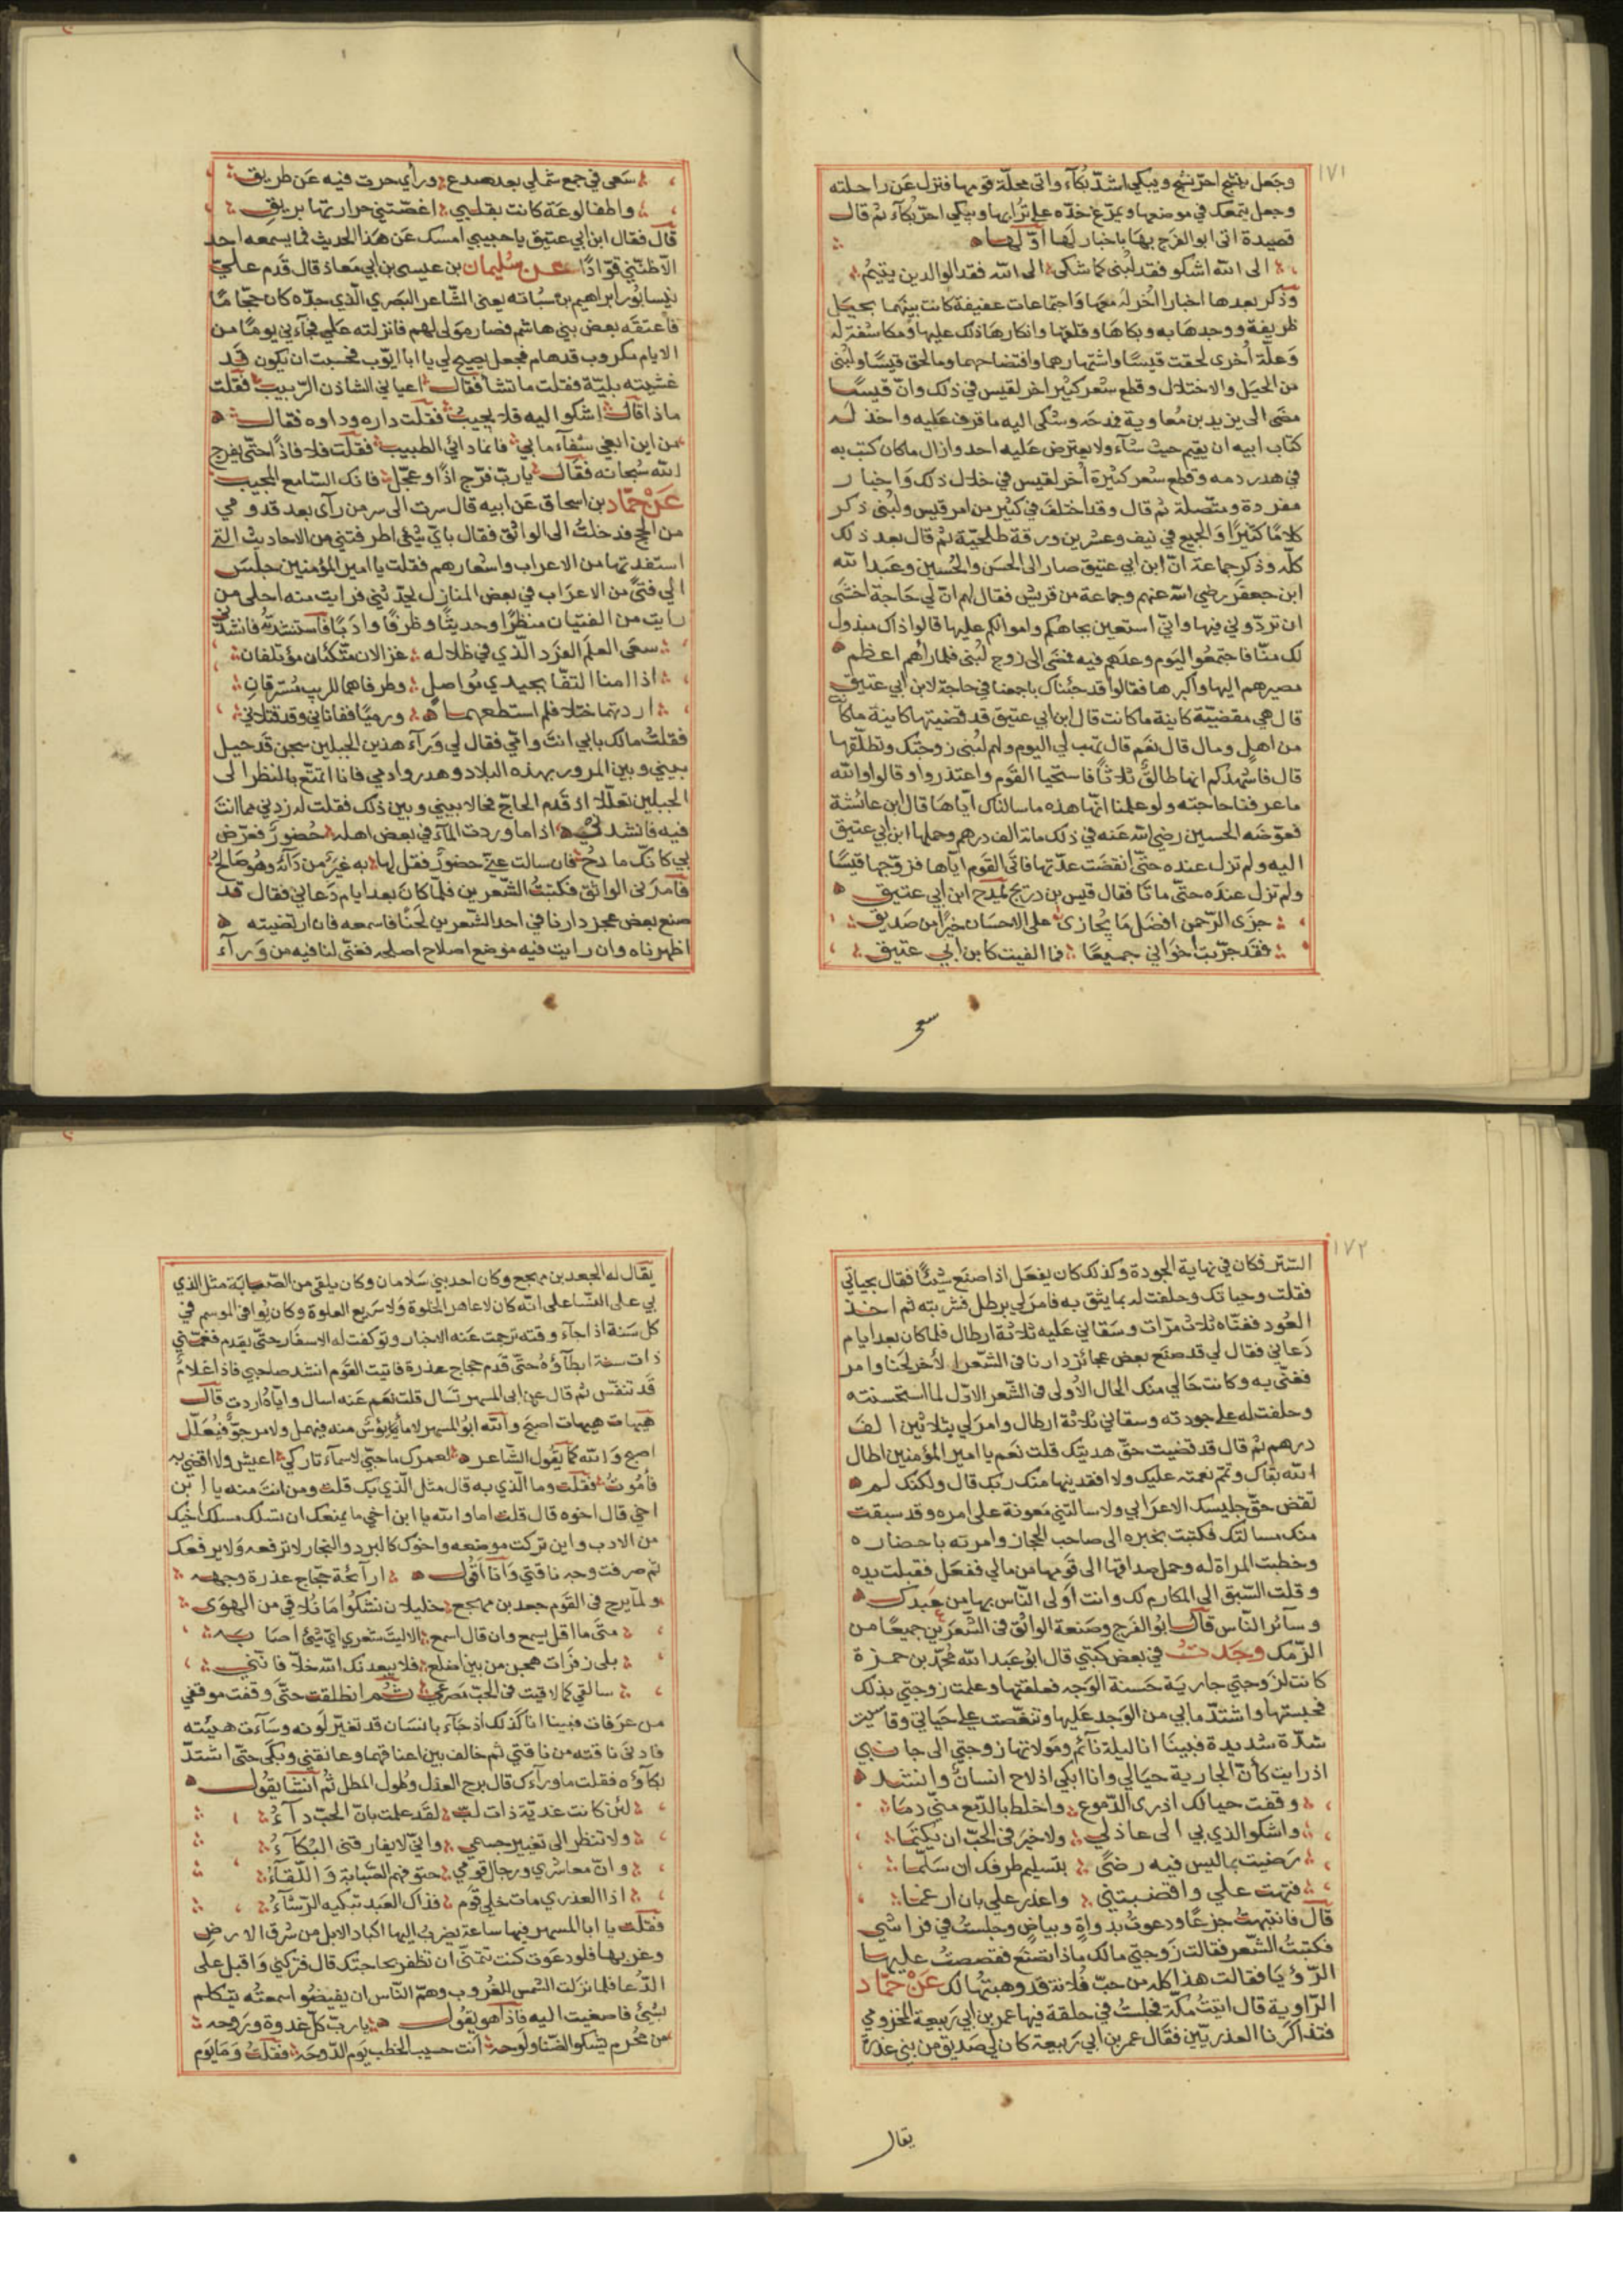 ١٧١
وجعل ينشج احرّ نشيج ويبكي اشدّ بكآء واتى محلّة قومها فنزل عن راحلته
وجعل يتمعّك في موضعها ويمرّغ خدّه على ترابها ويبكي احرّ بكآء ثم قال
قصيدة اتى ابو الفرج بها باخبار لها اوّلها
الى الله اشكو فقد لُبنى كما شكى الى الله فقد الوالدين يتيمُ
وذكر بعدها اخبارا اُخر لهُ معها واجتماعات عفيفة كانت بينهما بحيَل
ظريفة ووجدها به وبكاها وقلقها وانكارها ذلك عليها ومكاشفته له
وعلّة اُخرى لحقت قيسًا واشتهارهما وافتضاحهما وما لحق قيسًا ولُبنى
من الحيَل والاختلال وقطع شعر كثير اخر لقيس في ذلك وانّ قيسًا
مضى الى يزيد بن مُعاوية فمدحَه وشكى اليه ما قرف عليه واخذ له
كتاب ابيه ان يقيم حيث شآء ولا يعترض عليه احد وازال ما كان كتب به
في هدر دمه وقطع شعر كثيرة اُخر لقيس في خلال ذلك واخبار
مفردة ومتّصلة ثم قال وقد اختلف في كثير من امر قيس ولُبنى ذكر
كلامًا كثيرًا والجميع في نيف وعشرين ورقة طلحيّة ثم قال بعد ذلك
كلّه وذكر جماعة انّ ابن ابي عتيق صار الى الحسن والحُسين وعبد الله
ابن جعفر رضي الله عنهم وجماعة من قريش فقال لهم انّ لي حاجة اخشى
ان تردّوني فيها واني استعين بجاهكم واموالكم عليها قالوا ذاك مبذول
لك منّا فاجتمعُوا اليَوم وعدَهم فيه فمضى الى زوج لُبنى فلما رأهم اعظم
مصيرهم اليها واكبرها فقالوا قد جئناك باجمعنا في حاجة لابن ابي عتيق
قال هي مقضيّة كاينة ما كانت قال ابن ابي عتيق قد قضيتها كاينة ما كانت
من اهل ومال قال نعَم قال تهب لي اليوم ولهم لُبنى زوجتك وتطلّقها
قال فاشهدكم انها طالق ثلاثًا فاستحيا القوم واعتذروا وقالوا والله
ما عرفنا حاجته ولو علمنا انها هذه ما سالناك ايّاها قال ابن عائشة
فعوّضه الحسين رضي الله عنه في ذلك مائة الف درهم وحملها ابن ابي عتيق
اليه ولم تزل عنده حتّى انقضت عدّتها فاتى القوم ايّاها فزوّجها قيسًا
ولم تزل عنده حتّى ماتا فقال قيس بن دريح يمدح ابن ابي عتيق
جزى الرّحمن افضل ما يُجازى على الاحسان خيرًا من صديق
فقد جرّبت اخواني جميعًا فما الفيت كابن ابي عتيق
سعى
سَعى في جمع شملي بعد صدع ورأي حرت فيه عن طريق
واطفا لوعَة كانت بقلبي اغصّتني حرارتها بريق
قال فقال ابن ابي عتيق يا حبيبي امسك عن هذا الحديث فما يسمعه احد
الّا ظنّني قوّادًا عن سُليمان بن عيسى بن ابي معاذ قال قدم علىّ
نيسابور ابراهيم بن سُبابه يعني الشّاعر البَصري الّذي جدّه كان حجّامًا
فاعتقه بعض بني هاشم فصار مَولى لهم فانزلته علي فجآءني يومًا من
الايام مكروب قد هام فجعل يصيح لي يا ابا ايّوب فخسبت ان يكون قد
غشيته بليّة فقلت ما تشأ فقال اعياني الشاذن الرّبيب فقلت
ماذا قال اشكوا اليه فلا يجيبُ فقلت داره وداوه فقال
من اين ابغي شفآء ما بي فانما دائي الطبيب فقلت فلا فاذًا حتّى يفرج
الله سُبحانه فقال يا ربّ فرّج اذًا وعجّل فانك السّامع المجيب
عن حمّاد بن اسحاق عن ابيه قال سرت الى سر من رآى بعد قدومي
من الحج فدخلتُ الى الواثق فقال بايّ شئ اطرفتني من الاحاديث التي
استفدتها من الاعراب واشعارهم فقلت يا امير المؤمنين جلس
الي فتىً من الاعرَاب في بعض المنازل يحدّثني فرايت منه احلى من
رايت من الفتيان منظرًا وحديثًا وظرفًا وادبًا فاستنشدته فانشدني
سقى العلم الفرد الّذي في ظلاله غزالان متّكئان مؤتلفان
اذا امنا التقّا بجيدي تواصل وطرفاهما للريب مسترقان
اردتهما ختلا فلم استطعهما ورميًا ففاتاني وقد قتلاني
فقلتُ مالك بابي انت وامّي فقال لي ورآء هذين الجبلين سجن قد حيل
بيني وبين المرور بهذه البلاد وهدروا دمي فانا اتمتّع بالنظر الى
الجبلين تعلّلا اذ قدم الحاجّ ثم حالا بيني وبين ذلك فقلت له زدني مما انت
فيه فانشدني اذا ما وردت المآء في بعض اهله حُضورٌ فعرّض
بي كانّك مازحُ فان سالت عنّي حضورٌ فقل لها به غيرٌ من دائه وهو صالحُ
فامرَني الواثق فكتبتُ الشّعرين فلمّا كان بعد ايام دَعاني فقال قد
صنع بعض عجز دارنا في احد الشّعرين لحنًا فاسمعه فان ارتضيته
اظهرناه وان رايت فيه موضع اصلاح اصلحه فغنّى لنا فيه من ورآء
١٧٢
السّتر فكان في نهاية الجودة وكذلك كان يفعل اذا صنع شيئًا فقال بحياتي
فقلت وحياتك وحلفت له بما يثق به فامر لي برطل فشربته ثم اخذ
العُود فغنّاه ثلاث مرّات وسَقاني عليه ثلاثة ارطال فلما كان بعد ايام
دَعاني فقال لي قد صنَع بعض عجائز دارنا في الشّعر الأخر لحنا وامر
فغنّى به وكانت حالي منك الحال الأولى في الشّعر الاوّل لما استحسنته
وحلفت له على جودته وسقاني ثلاثة ارطال وامر لي بثلاثين الف
درهم ثم قال قد قضيت حقّ هديتك قلت نعَم يا امير المؤمنين اطال
الله بقاك وتمّم نعمته عليك ولا افقدنيها منك ربك قال ولكنك لم
تقض حقّ جليسك الاعرابي ولا سالتني معونة على امره وقد سبقت
منك مسالتك فكتبت بخبره الى صاحب الحجاز وامرته باحضاره
وخطبت المراة له وحمل صداقها الى قومها من مالي ففعل فقبلت يده
وقلت السّبق الى المكارم لك وانت اَولى النّاس بها من عبدك
وسآئر النّاس قال ابُو الفرج وصنعة الواثق في الشّعرين جميعًا من
الرّمل وجدتُ في بعض كتبي قال ابُو عبد الله مُحمّد بن حمزة
كانت لزوجتي جارية حَسنة الوَجه فعلقتها وعلمت زوجتي بذلك
فحبستها واشتدّ ما بي من الوَجد عليها وتنغّصت على حياتي وقاسيت
شدّة شديدة فبينَا انا ليلة نآئم ومولاتها زوجتي الى جانبي
اذ رايت كأنّ الجارية حيالي وانا ابكي اذ لاح انسانٌ وانشد
وقفت حيالك اذرى الدّموع واخلط بالدّمع منّي دمًا
واشكو الذي بي الى عاذلي ولا خيرَ في الحبّ ان يُكتَمَا
رَضيت بما ليس فيه رضىً بتسليم طرفك ان سَلّمَا
فتهت علي واقضبتني واعذر علي بان ارغما
قال فانتبهتُ جزعًا ودعوتُ بدواةٍ وبياضٍ وجلستُ في فراشي
فكتبتُ الشّعر فقالت زوجتي مالك ماذا تصنَع فقصصتُ عليها
الرّؤيَا فقالت هذا كله من حبّ فُلانة قد وهبتُها لك عن حمّاد
الرّاوية قال اتيتُ مكّة فجلستُ في حلقة فيها عمر بن ابي ربيعة المخزومي
فتذاكرنا العذريّين فقال عمر بن ابي ربيعة كان لي صديق من بني عذرة
يقال
يقال له الجعد بن مهجع وكان احد بني سَلامان وكان يلقى من الصّبابَة مثل الذي
بي على النّسا على انّه كان لا عاهر الخلوة وَلا سَريع العلوة وكان يُوافى الموسم في
كل سَنة اذا جآء وقته ترجمت عنه الاخبار وتوكفت له الاسفار حتّى يقدم فغمّني
ذات سنة ابطآؤهُ حتّى قدم حجاج عذرة فاتيت القوم انشد صاحبي فاذا غلام
قد تنفّس ثم قال عن ابى المسهر تسال قلت نعَم عنه اسال واياه اردت قال
هيهات هيهات اصبح والله ابُو المسهر لا مأيُوسٌ منه فيهمل ولا مرجوٌ فيُعلّل
اصبح والله كما يقُول الشّاعر لعمرك ما حبّي لاسمآء تاركي اعيش ولا اقضي به
فأمُوتُ فقلت وما الّذي به قال مثل الّذي بك قلت ومن انت منه يا ابن
اخي قال اخوه قال قلت اما والله يا ابن اخي ما يمنعك ان تسلك مسلك اخيك
من الادب واين تركت موضعه واخوك كالبرد والبجاد لا ترفعه ولا يرفعك
ثم صرفت وجه ناقتي وَانا أقُول ارآئحة حجّاج عذرة وجهه
ولمّا يرح في القوم جعد بن مهجع خليلان نشكُوا ما نُلاقي من الهوَى
متى ما اقل يسمع وان قال اسمع الا ليت شعري ايّ شئ اصابه
بلى زفرات هجن من بين اضلع فلا يبعدنك الله خلّا فانّني
سالقي كما لاقيت في الحبّ مصرعي ثم انطلقت حتّى وقفت موقفي
من عرَفات فبينا انا كذلك اذ جآء بانسَان قد تغيّر لَونه وسآءت هيئته
فادنى ناقته من ناقتي ثم خالف بين اعناقهما وعانقني وبكَى حتّى اشتدّ
بكآؤه فقلت ما ورآءك قال برح العذل وطول المطل ثُم انشا يقُول
لئن كانت عديّة ذات لبّ لقد علمت بانّ الحبّ دآءُ
ولا تنظر الى تغيير جسمي وانّي لا يفارقني البُكآءُ
وانّ معاشري ورجال قومي حتوفهم الصّبابة وَاللّقآءُ
اذا العذري مات خلي قومٍ فذاك العَبد تبكيه الرّشآءُ
فقلت يا ابا المسهر فيها ساعة يضربُ اليها اكباد الابل من شرق الارض
وغربها فلو دعَوت كنت تتمنّى ان تظفر بحاجتك قال فتركني وَاقبل على
الدّعا فلما نزلت الشمس للغُروب وهمّ النّاس ان يفيضُوا سمعتُه يتكلم
بشئ فاصغيت اليه فاذا هو يقُول يا ربّ كلّ غدوة ورَوحه
من مُحرم يشكو الضّنا ولَوحه انت حسيب الخطب يَوم الدّوحَه فقلت وَمَا يَوم